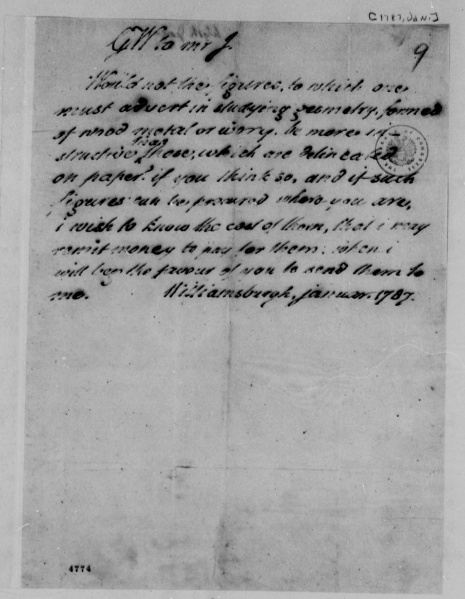 [1787, Jan.]
GW to mr J.
9
Would not the figures, to which one
must advert in studying geometry, formed
of wood metal or ivory, be more in-
than
structive those, which are delineated
on paper? if you think so, and if such
figures can be procured where you are,
i wish to know the cost of them, that i may
remit money to pay for them: when i
will beg the favour of you to send them to
me. Williamsburgh, januar. 1787.
4774